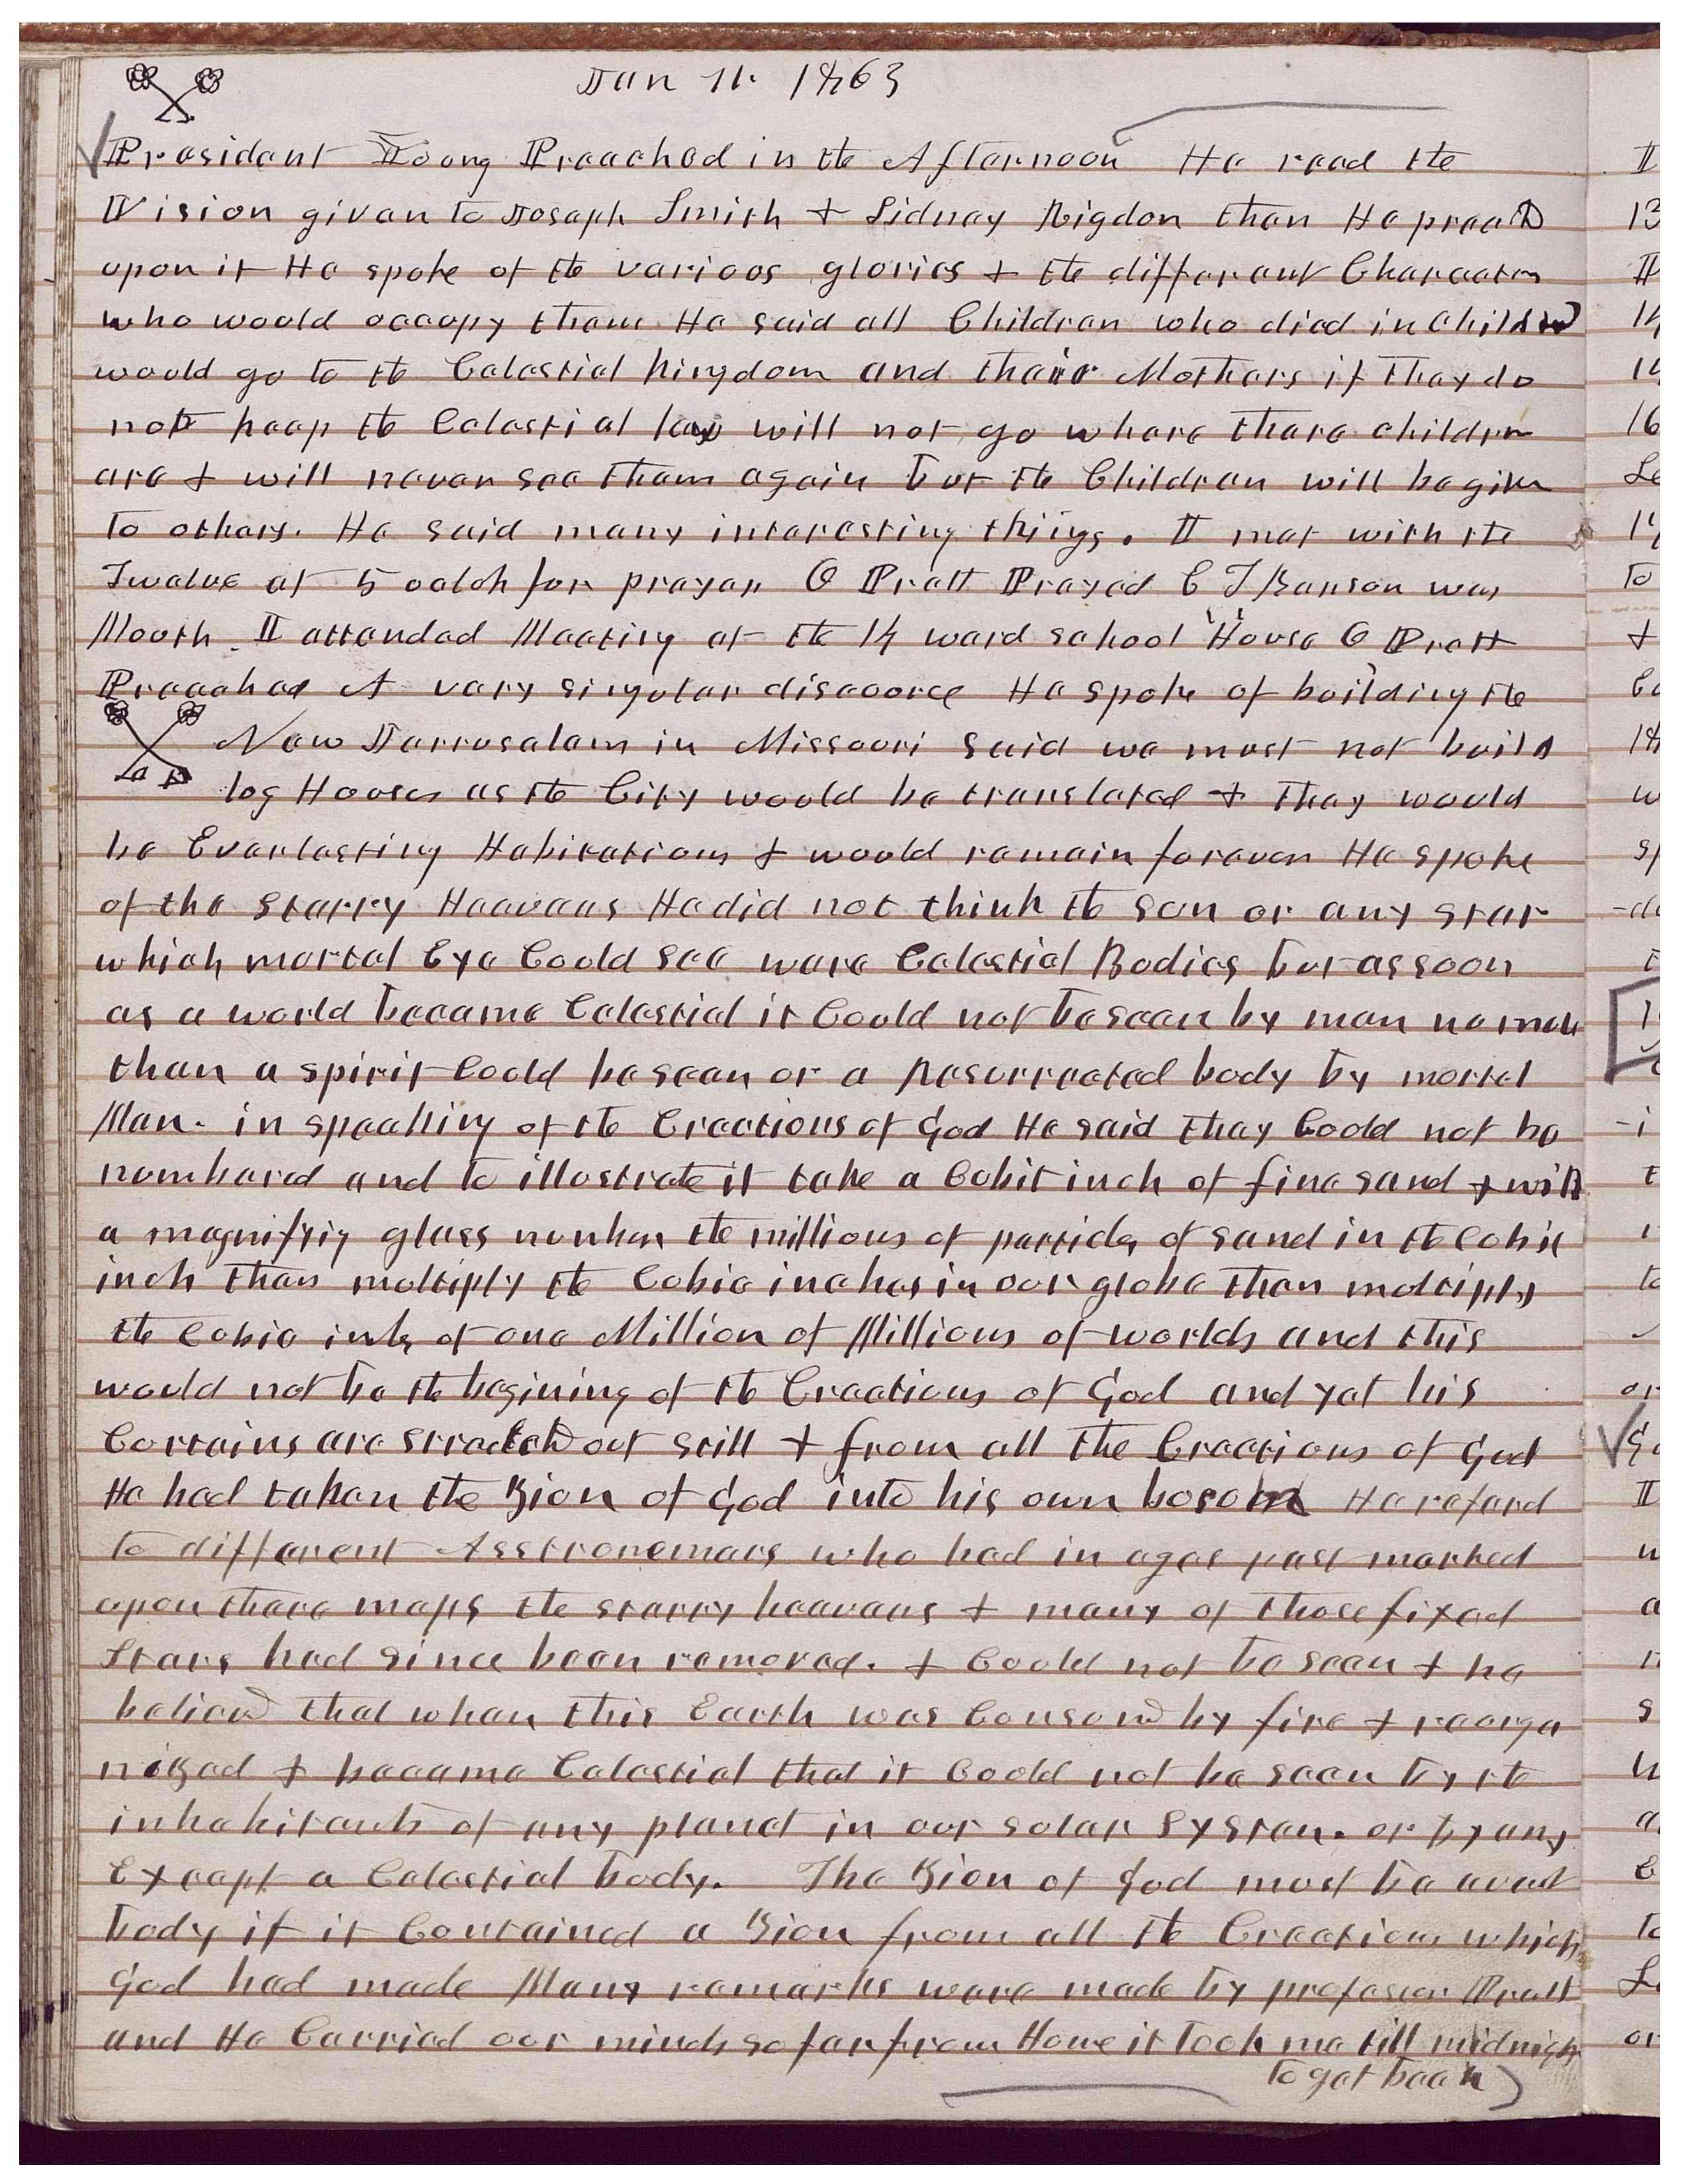 Jan 11. 1863
President Young Preached in the Afternoon He read the
Vision given to Joseph Smith & Sidney Rigdon then He preached
upon it He spoke of the various glories & the different Characters
who would occupy them He said all Children who died in Childhood
would go to the Celestial kingdom and their Mothers if they do
not keep the Celestial law will not go where there children
are & will never see them again but the Children will be given
to others. He said many interesting things. I met with the
Twelve at 5 oclok for prayer O Pratt Prayed E T Benson was
Mouth. I attended Meeting at the 14 ward school House O Pratt
Preached A very singular discource He spoke of building the
New Jerrusalem in Missouri said we must not build
log Houses as the City would be translated & they would
be Everlasting Habitations & would remain forever He spoke
of the starry Heavens He did not think the sun or any star
which mortal Eye Could see were Celestial Bodies but as soon
as a world became Celestial it Could not be seen by man no more
than a spirit Could be seen or a Resurrected body by mortal
Man. in speaking of the Creations of God He said they Could not be
numbered and to illustrate it take a Cubit inch of fine sand & with
a magnifyig glass number the millions of particles of sand in the Cubic
inch then multiply the Cubic inches in our globe then multiply
the Cubic inches of one Million of Millions of worlds and this
would not be the begining of the Creations of God and yet his
Curtains are stretched out still & from all the Creations of God
He had taken the Zion of God into his own bosom He refered
to different Asstronemers who had in ages past marked
upon there maps the starry heavens & many of those fixed
Stars had since been removed. & Could not be seen & he
believed that when this Earth was Consumed by fire & reorga
nized & became Celestial that it Could not be seen by the
inhabitants of any planet in our solar System. or by any
Except a Celestial body. The Zion of God must be a vast
body if it Contained a Zion from all the Creations which
God had made Many remarks were made by professor Pratt
and He Carried our minds so far from Home it took me till midnight
to get back